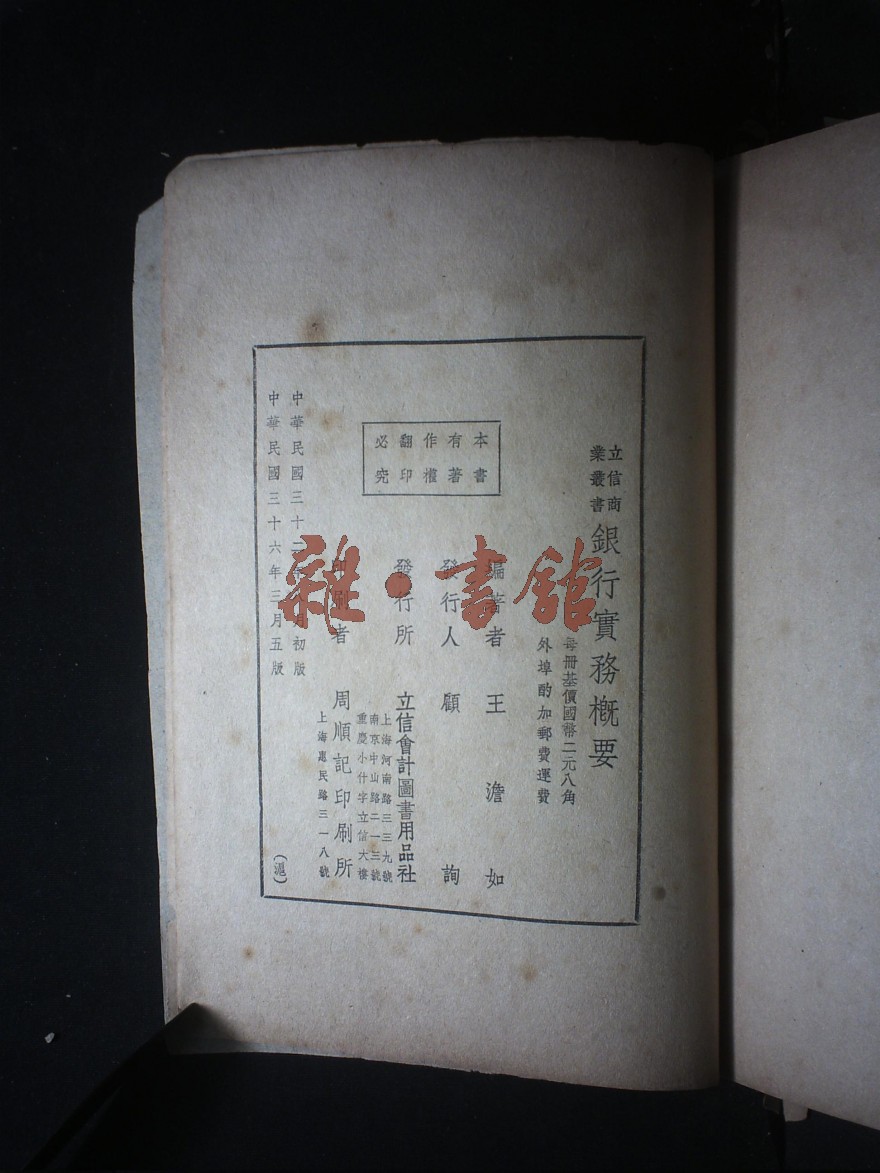 立信商
業叢書
銀行實務概要
每冊基價國幣二元八角
外埠酌加郵費運費
本書
有著
作權
翻印
必究
編著者 王澹如
發行人 顧詢
發行所 立信會計圖書用品社
上海河南路三三九號
南京中山路二一三號
重慶小什字立信大樓
印刷者 周順記印刷所
上海惠民路三一八號
中華民國三十二年 月初版
中華民國三十六年三月五版
(滬)
雜·書館